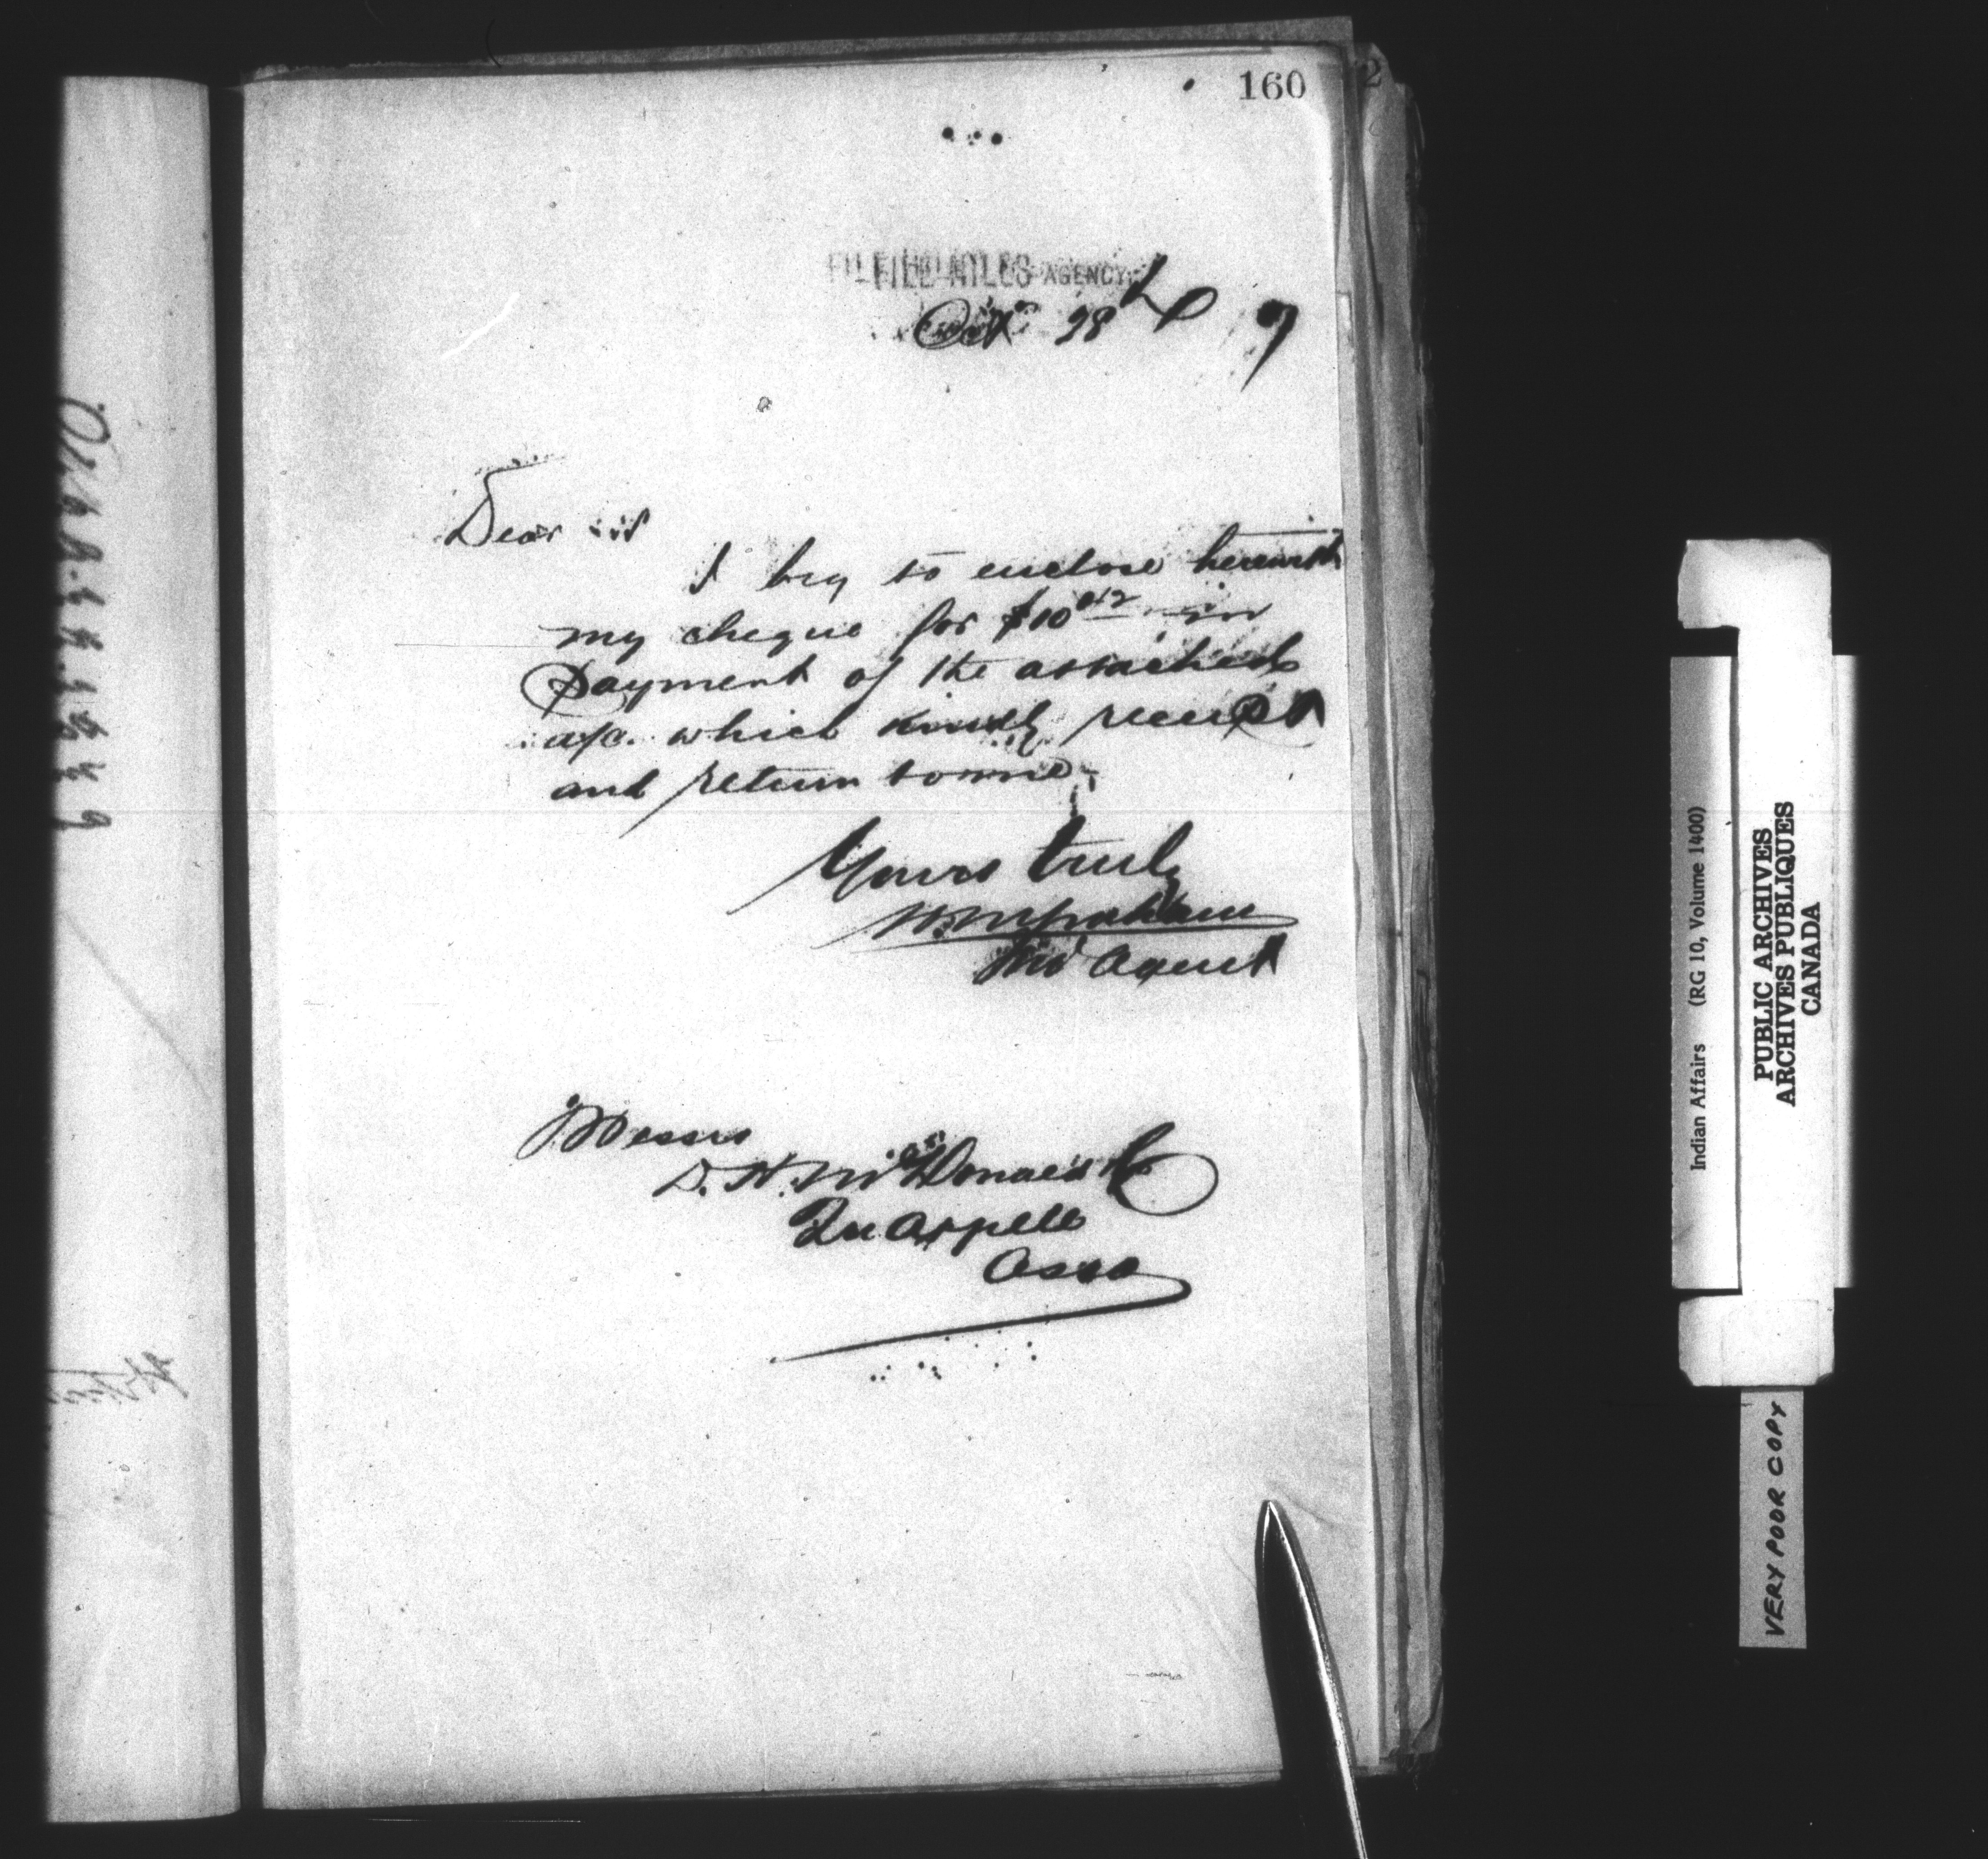 160
2
FILE HILLS AGENCY.
Oct 28th 9
Dear Sir
I beg to enclose herewith
my cheque for $10 in
payment of the attached
a/c. which kindly receipt
and return to me.
Yours truly
W. M. Graham
Ind Agent
Messrs
D. H. McDonald & Co
Qu Appelle
Assa
Indian Affairs (RG 10, Volume 1400)
PUBLIC ARCHIVES
ARCHIVES PUBLIQUES
CANADA
VERY POOR COPY